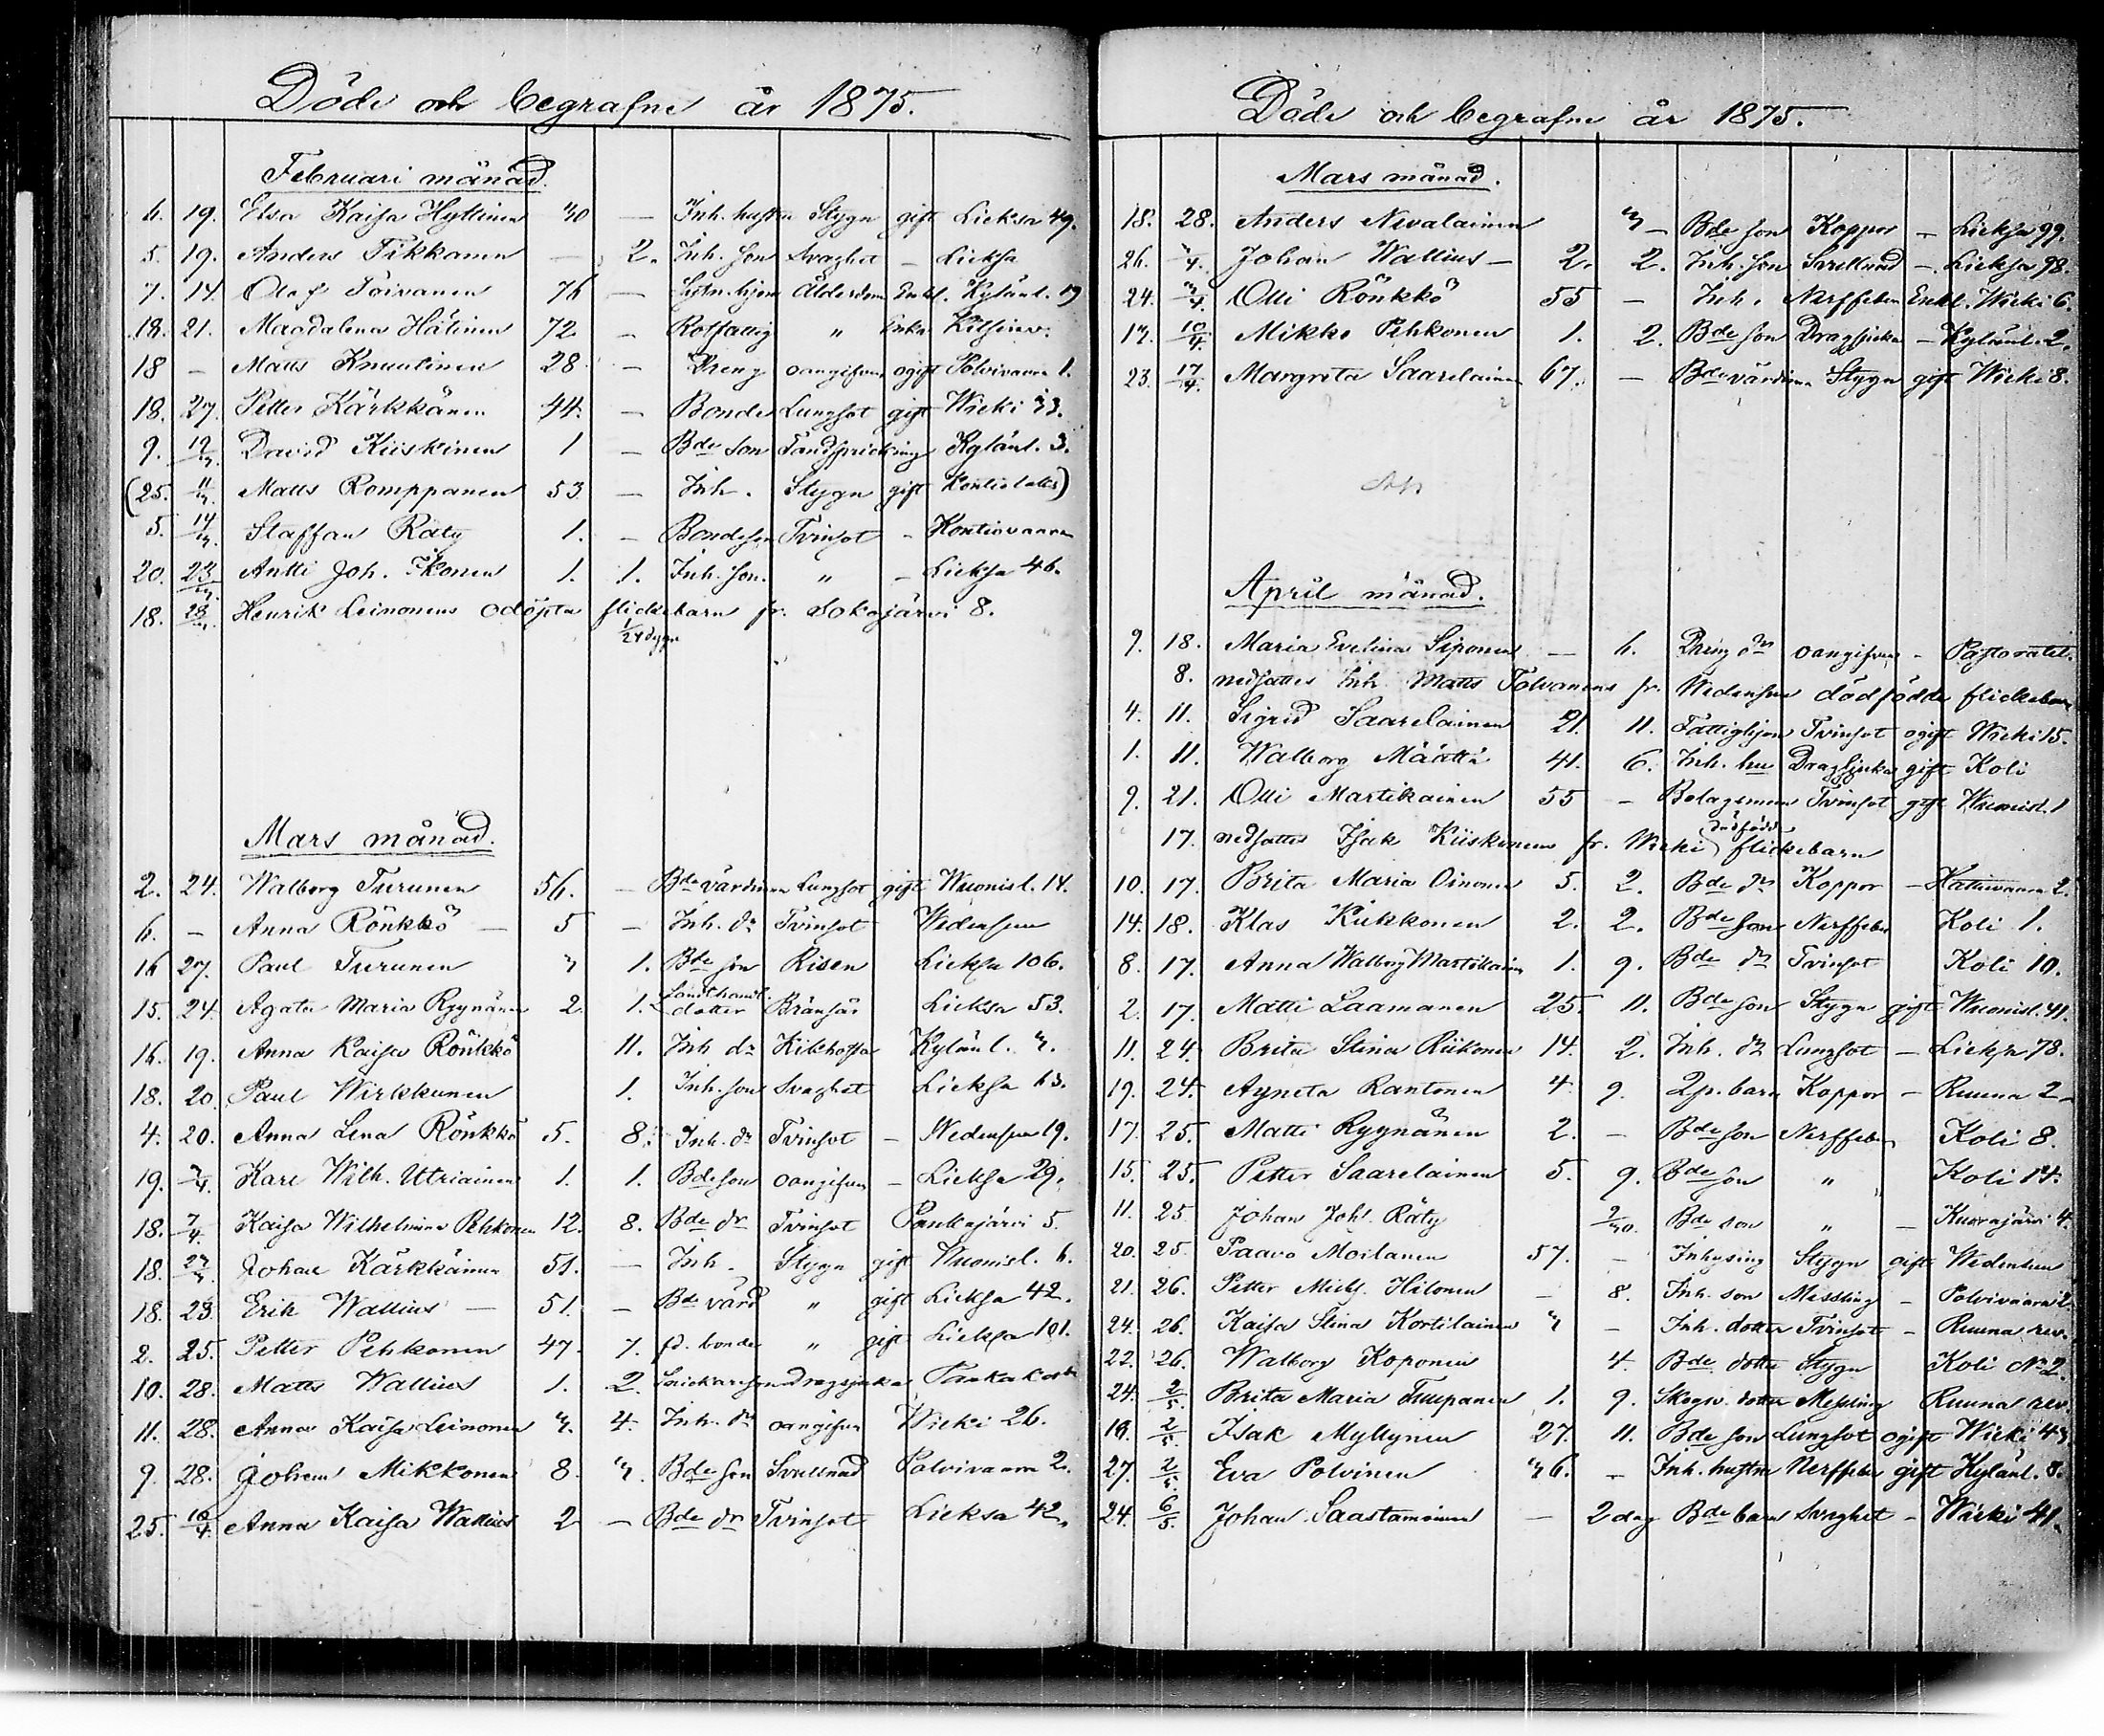 Döde och begrafne år 1875.
Februari månad.
6. 19. Elsa Kaisa Hyttinen 30 — Inh. hustru Stygn gift Lieksa 49.
5. 19. Anders Tikkanen — 2. Inh. son Svaghet — Lieksa
7. 14. Olof Toivanen 76 — Ålderdom Enkl. Kylänl. 19
18. 21. Magdalena Hätinen 72 — Rotfattig " Enka
18 — Matts Knuutinen 28 — Dreng oangifven ogift Polvivaara 1.
18. 27. Petter Kärkkänen 44. — Bonde Lungsot gift Wieki 33.
9. 12/3. David Kiiskinen 1 — Bde son Tandsprickning Kylänl. 3.
(25. 11/3. Matts Romppanen 53. — Inh. Stygn gift Kontiolaks)
5. 14/3. Staffan Räty 1. — Bondeson Tvinsot - Kontiovaara
20. 23/3. Antti Joh. Ikonen 1. 1. Inh. son. " — Lieksa 46.
18. 28/3. Henrik Leinonens odöpta flickebarn fr. Sokojärvi 8.
1/24 dygn
Mars månad.
2. 24. Walborg Turunen 56. — Bde värdinna Lungsot gift Wuonisl. 14.
6. — Anna Rönkkö — 5 — Inh. dr Tvinsot Wedensuu
16 27. Paul Turunen 3 1. Bde son Risen Lieksa 106.
15. 24. Agata Maria Ryynänen 2 1. Landthandl. dotter Bränsår Lieksa 53.
16. 19. Anna Kaisa Rönkkö 11. Inh dr Kikhosta Kylänl. 3.
18. 20. Paul Wirkkunen 1. Inh. son Svaghet Lieksa 63.
4. 20. Anna Lena Rönkkö 5. 8. Inh. dr Tvinsot — Wedensuu 19.
19. 3/4. Karl Wilh. Utriainen 1. 1. Bde son oangifven — Lieksa 29.
18. 7/4. Kaisa Wilhelmina Pehkonen 12. 8. Bde dr Tvinsot Pankajärvi 5.
18. 27/3. Johan Kärkkäinen 51. — Inh. Stygn gift Wuonisl. 6.
18. 23. Erik Wallius — 51. — Bde värd " gift Lieksa 42.
2. 25. Petter Pehkonen 47. 7. fd. bonde " gift Lieksa 101.
10. 28. Matts Wallius 1. 2. Snickareson Dragsjuka Pankakoski
11. 28. Anna Kaisa Leinonen 3. 4. Inh. dr oangifven Wieki 26.
9. 28. Johan Mikkonen 8. 3. Bde son Svullnad Polvivaara 2.
25. 10/4. Anna Kaisa Wallius 2 — Bde dr Tvinsot Lieksa 42.
Döde och begrafne år 1875.
Mars månad.
18. 28. Anders Nevalainen 3 — Bde son Koppor — Lieksa 99.
26. 3/4. Johan Wallius — 2. 2. Inh. son Svullnad — Lieksa 98.
24. 3/4. Olli Rönkkö 55 — Inh. Nerffeber Enkl. Wieki 6.
17. 10/4. Mikko Pehkonen 1. 2. Bde son Dragsjuka — Kylänl. 2.
23. 17/4. Margreta Saarelainen 67. — Bde värdinna Stygn gift Wieki 8.
April månad.
9. 18. Maria Evelina Siponen — 6. Dreng dr oangifven — Pastoratet.
8. nedsattes Inh. Matts Tolvanens fr. Wedensuu dödfödde flickebarn
4. 11. Sigrid Saarelainen 21. 11. Fattighjon Tvinsot ogift Wieki 15.
1. 11. Walborg Määttä 41. 6. Inh. hu Dragsjuka gift Koli
9. 21. Olli Martikainen 55 — Bolagsman Tvinsot gift Wuonisl. 1
17. nedsattes Isak Kiiskinens fr. Wieki dödfödd flickebarn
10. 17. Brita Maria Oinonen 5. 2. Bde dr Koppor — Hattuvaara 2.
14. 18. Klas Kukkonen 2. 2. Bde son Nerffeber Koli 1.
8. 17. Anna Walborg Martikainen 1. 9. Bde dr Tvinsot Koli 10.
2. 17. Matti Laamanen 25. 11. Bde son Stygn gift Wuonisl. 41.
11. 24. Brita Stina Riikonen 14. 2. Inh. dr Lungsot — Lieksa 78.
19. 24. Agneta Rantonen 4 9. barn Koppor — Ruuna 2
17. 25. Matti Ryynänen 2. — Bde son Nerffeber Koli 8.
15. 25. Petter Saarelainen 5. 9. Bde son " Koli 14.
11. 25 Johan Joh. Räty 2/30. Bde son " —
20. 25. Paavo Moilanen 57. — Inhysing Stygn gift Wedensuu
21. 26. Petter Mich. Hilonen — 8. Inh. son Messling — Polvivaara 2.
24. 26. Kaisa Stina Kortilainen 3 — Inh. dotter Tvinsot — Ruuna rev.
22. 26. Walborg Koponen 4. Bde dotter Stygn Koli No 2.
24. 2/5. Brita Maria Tuupanen 1. 9. Skogv. dotter Messling Ruuna rev.
19. 2/5. Isak Myllynen 27. 11. Bde son Lungsot ogift Wieki 43
27. 2/5. Eva Polvinen 36. — Inh. hustru Nerffeber gift Kylänl. 8.
24. 6/5. Johan Saastamoinen — 2 dag Bde barn Svaghet — Wieki 41.